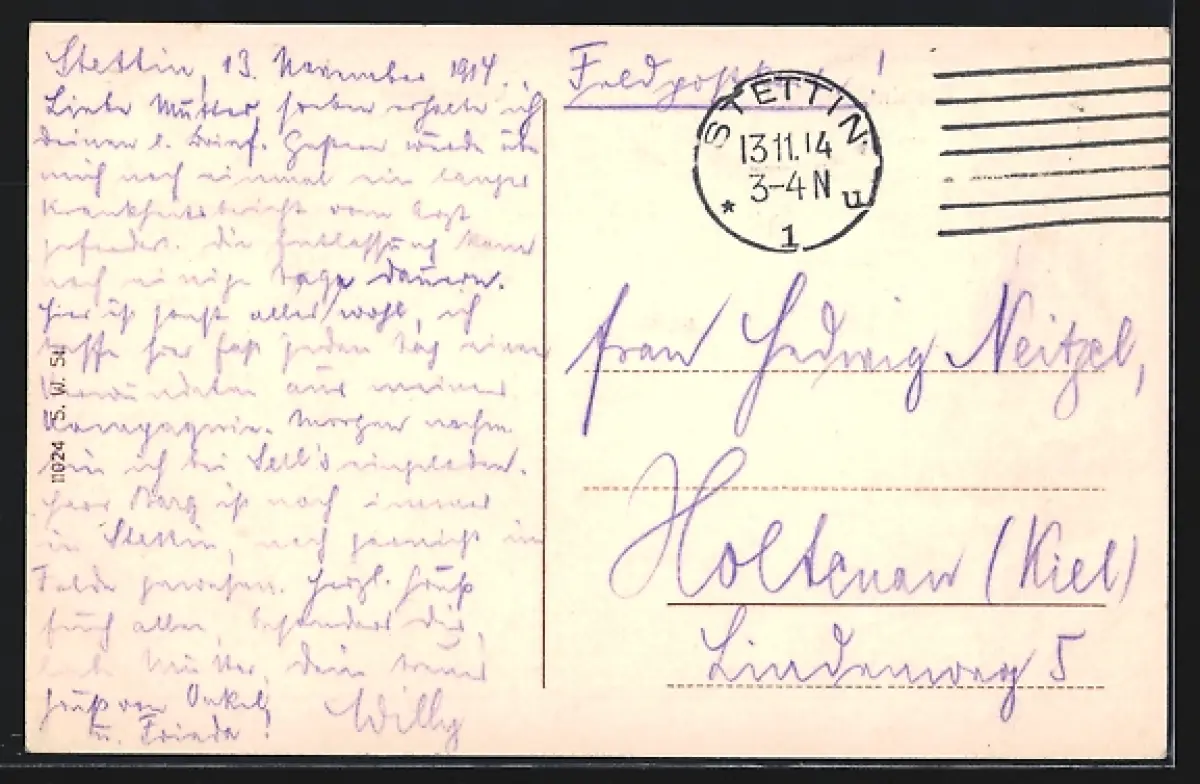 Stettin, 13. November 1914.
Liebe Mutter, soeben erhalte ich
Deinen l. Brief. Gestern wurde über
mich noch einmal ein langer
Krankheitsbericht vom Arzt
gefordert. Die Entlassung kann
noch einige Tage dauern.
Hier ist sonst alles wohl, ich
treffe hier fast jeden Tag einen
Verwundeten aus meiner
Kompagnie. Morgen nachm.
bin ich bei Sell's eingeladen.
Herr Berg ist noch immer
in Stettin, noch garnicht im
Felde gewesen. Herzl. Gruß
Euch allen, besonders Dir,
liebe Mutter, Dein treuer
Willy
Gruß von Onkel
u. Frieda!
11024 S. W. S.
Feldpostkarte!
STETTIN
13 11.14
3-4 N
* 1 u
Frau Hedwig Neitzel,
Holtenau (Kiel)
Lindenweg 5